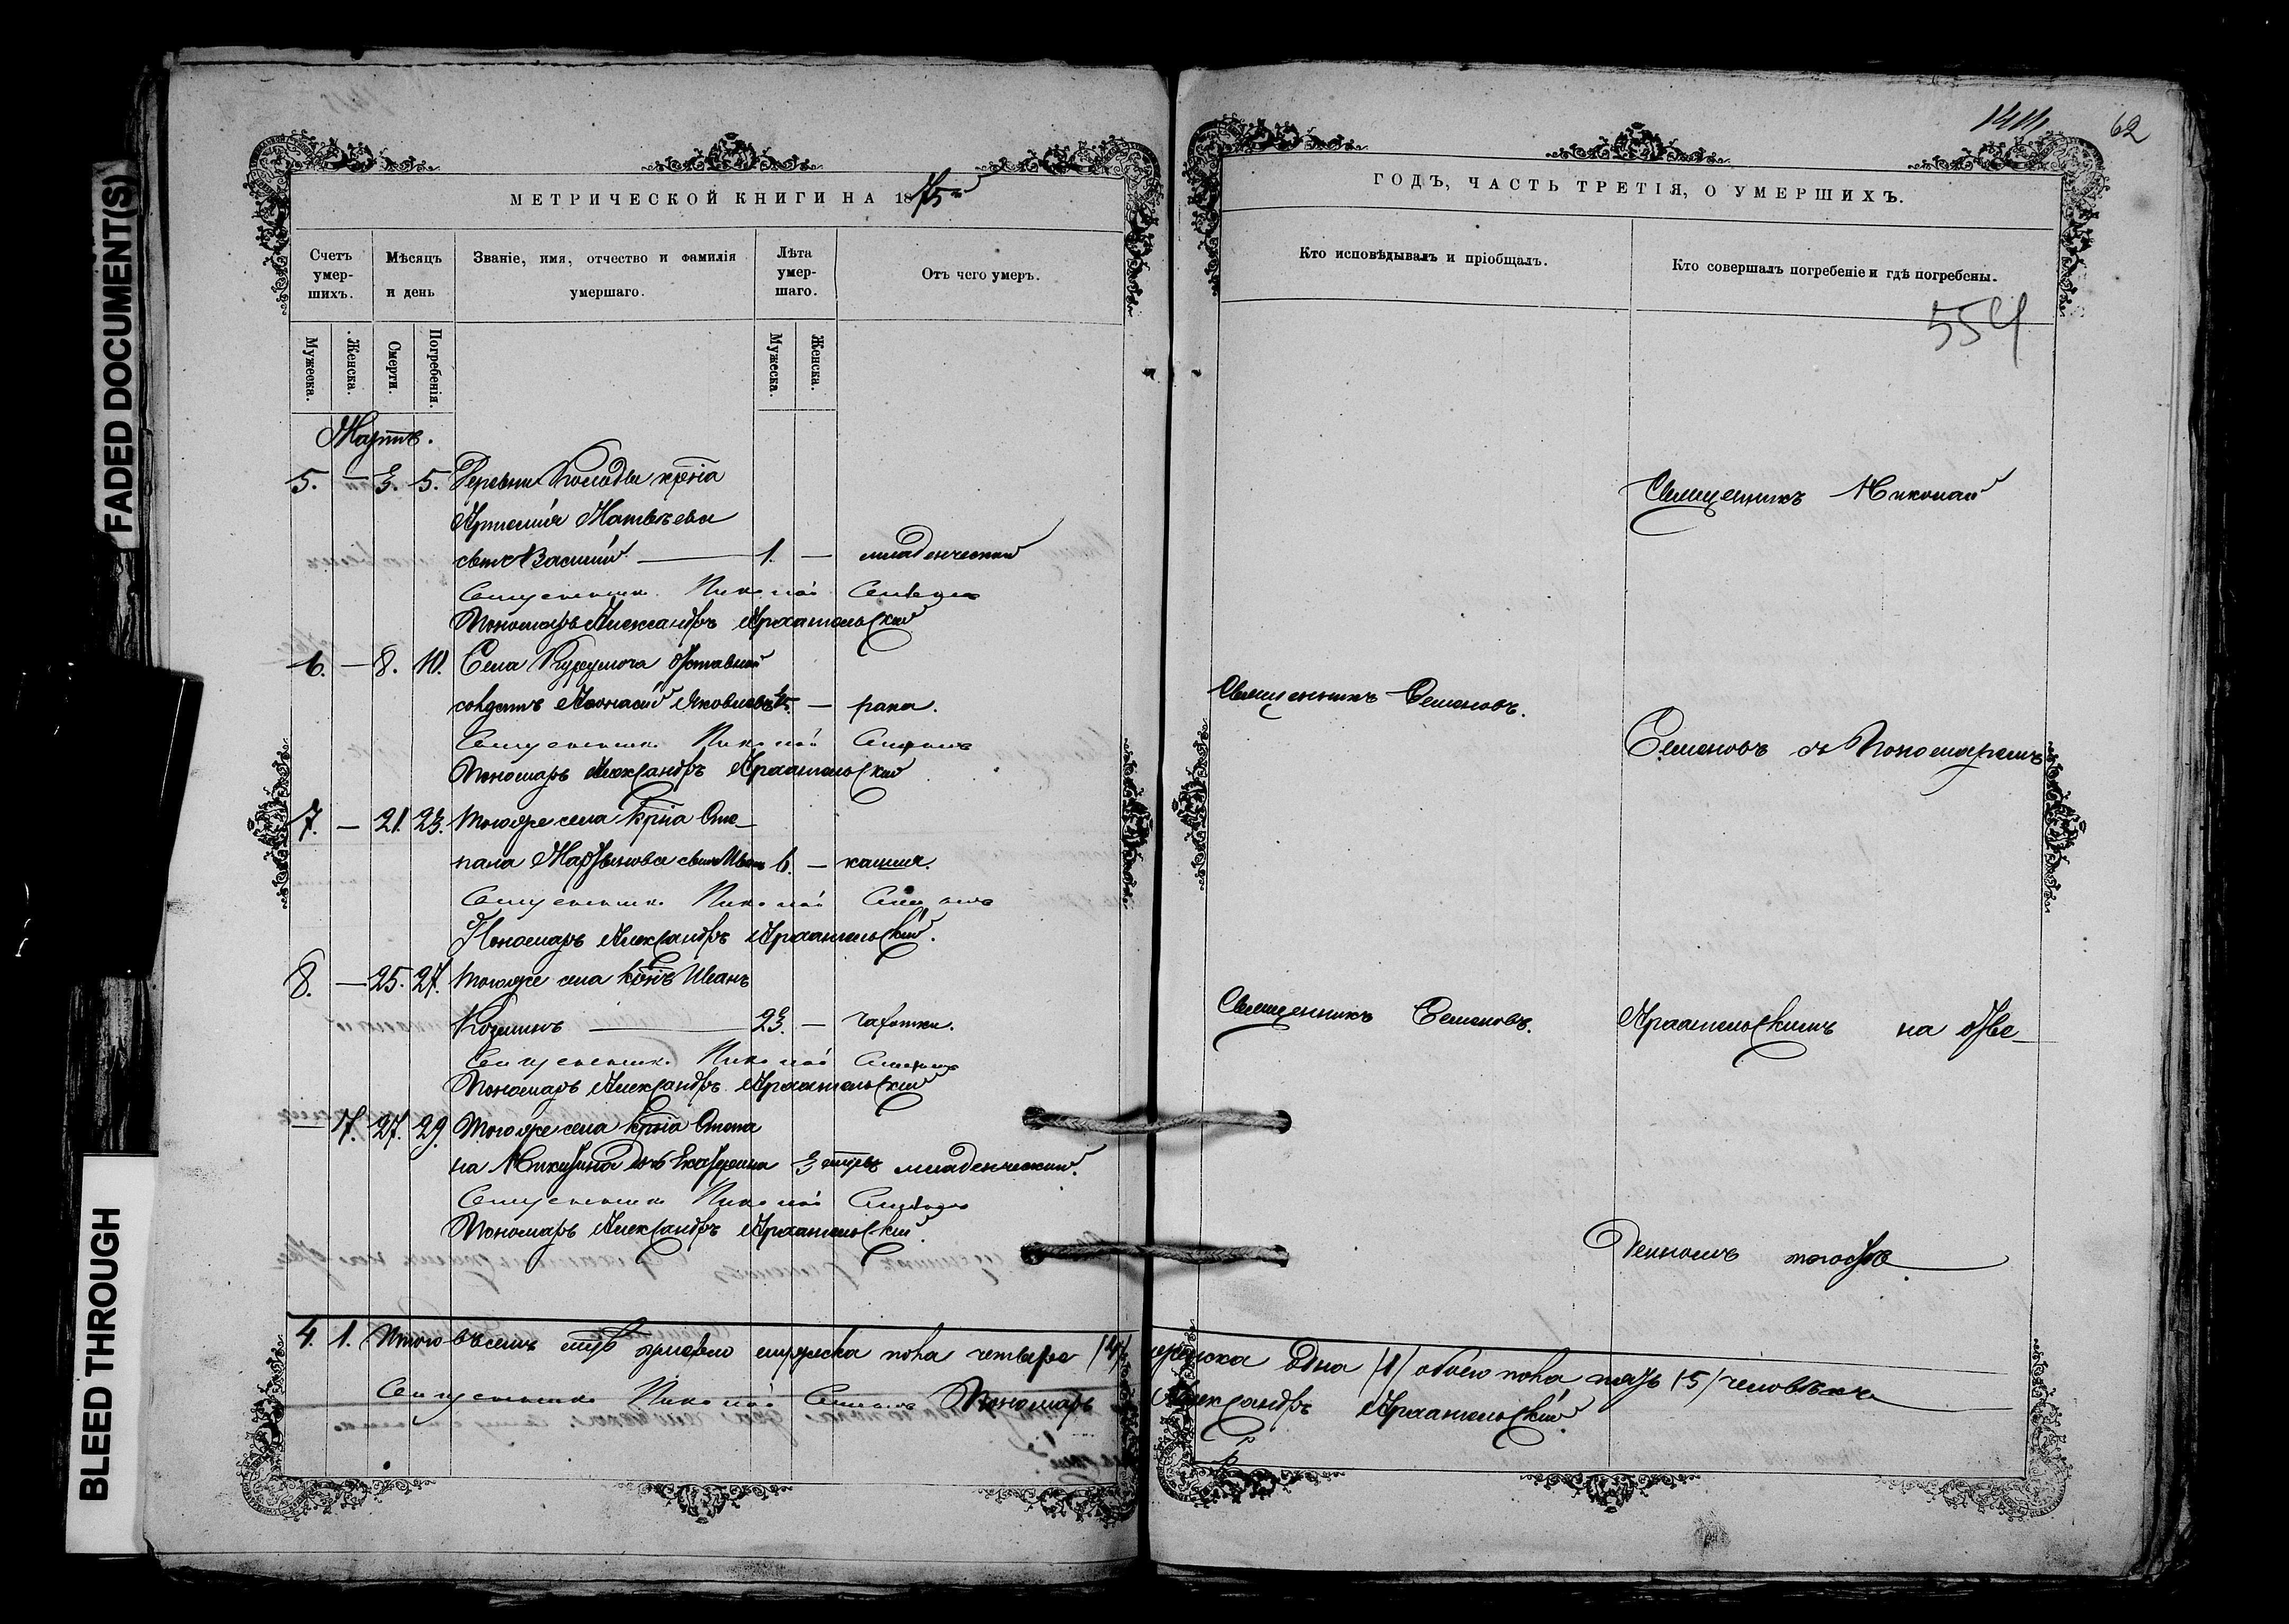 FADED DOCUMENT(S)
BLEED THROUGH
МЕТРИЧЕСКОЙ КНИГИ НА 1875й
Счетъ умер-шихъ.
Мѣсяцъ и день
Званіе, имя, отчество и фамилія умершаго.
Лѣта умер-шаго.
Отъ чего умеръ.
Мужеска.
Женска.
Смерти.
Погребенія.
Мужеска.
Женска.
Мартъ.
5. — 3. 5. Деревни крнĩа
Матвѣева
сынъ Василій — 1. — младенческой
Священникъ Николай Семеновъ
Пономарь Александръ Архангельскій
6. — 8. 10. Села Курумоча отставной
солдатъ Аѳонасій Яковлевъ — рака.
Священникъ Николай Семеновъ
Пономарь Александръ Архангельскій
7. — 21. 23. Тогоже села крнĩа Сте-
пана сынъ Иванъ 6. — кашля.
Священникъ Николай Семеновъ
Пономарь Александръ Архангельскій.
8. — 25. 27. Тогоже села крнъ Иванъ
— 23. — чахотки.
Священникъ Николай Семеновъ
Пономарь Александръ Архангельскій
— 7. 27. 29. Тогоже села крнĩа Степа
на Никитина дочь Екатерина 3 младенческой.
Священникъ Николай Семеновъ
Пономарь Александръ Архангельскій.
4. 1. Итого въ семъ мцѣ умерло мужеска пола четыре /4/ женска одна /1/ обоего пола пять /5/ человѣкъ
Священникъ Николай Семеновъ Пономарь Александръ Архангельскій.
62
ГОДЪ, ЧАСТЬ ТРЕТІЯ, О УМЕРШИХЪ.
Кто исповѣдывалъ и пріобщалъ.
Кто совершалъ погребеніе и гдѣ погребены.
554
Священникъ Николай
Священникъ Семеновъ.
Семеновъ съ Пономаремъ
Священникъ Семеновъ.
Архангельскимъ на отве-
денномъ погостѣ.